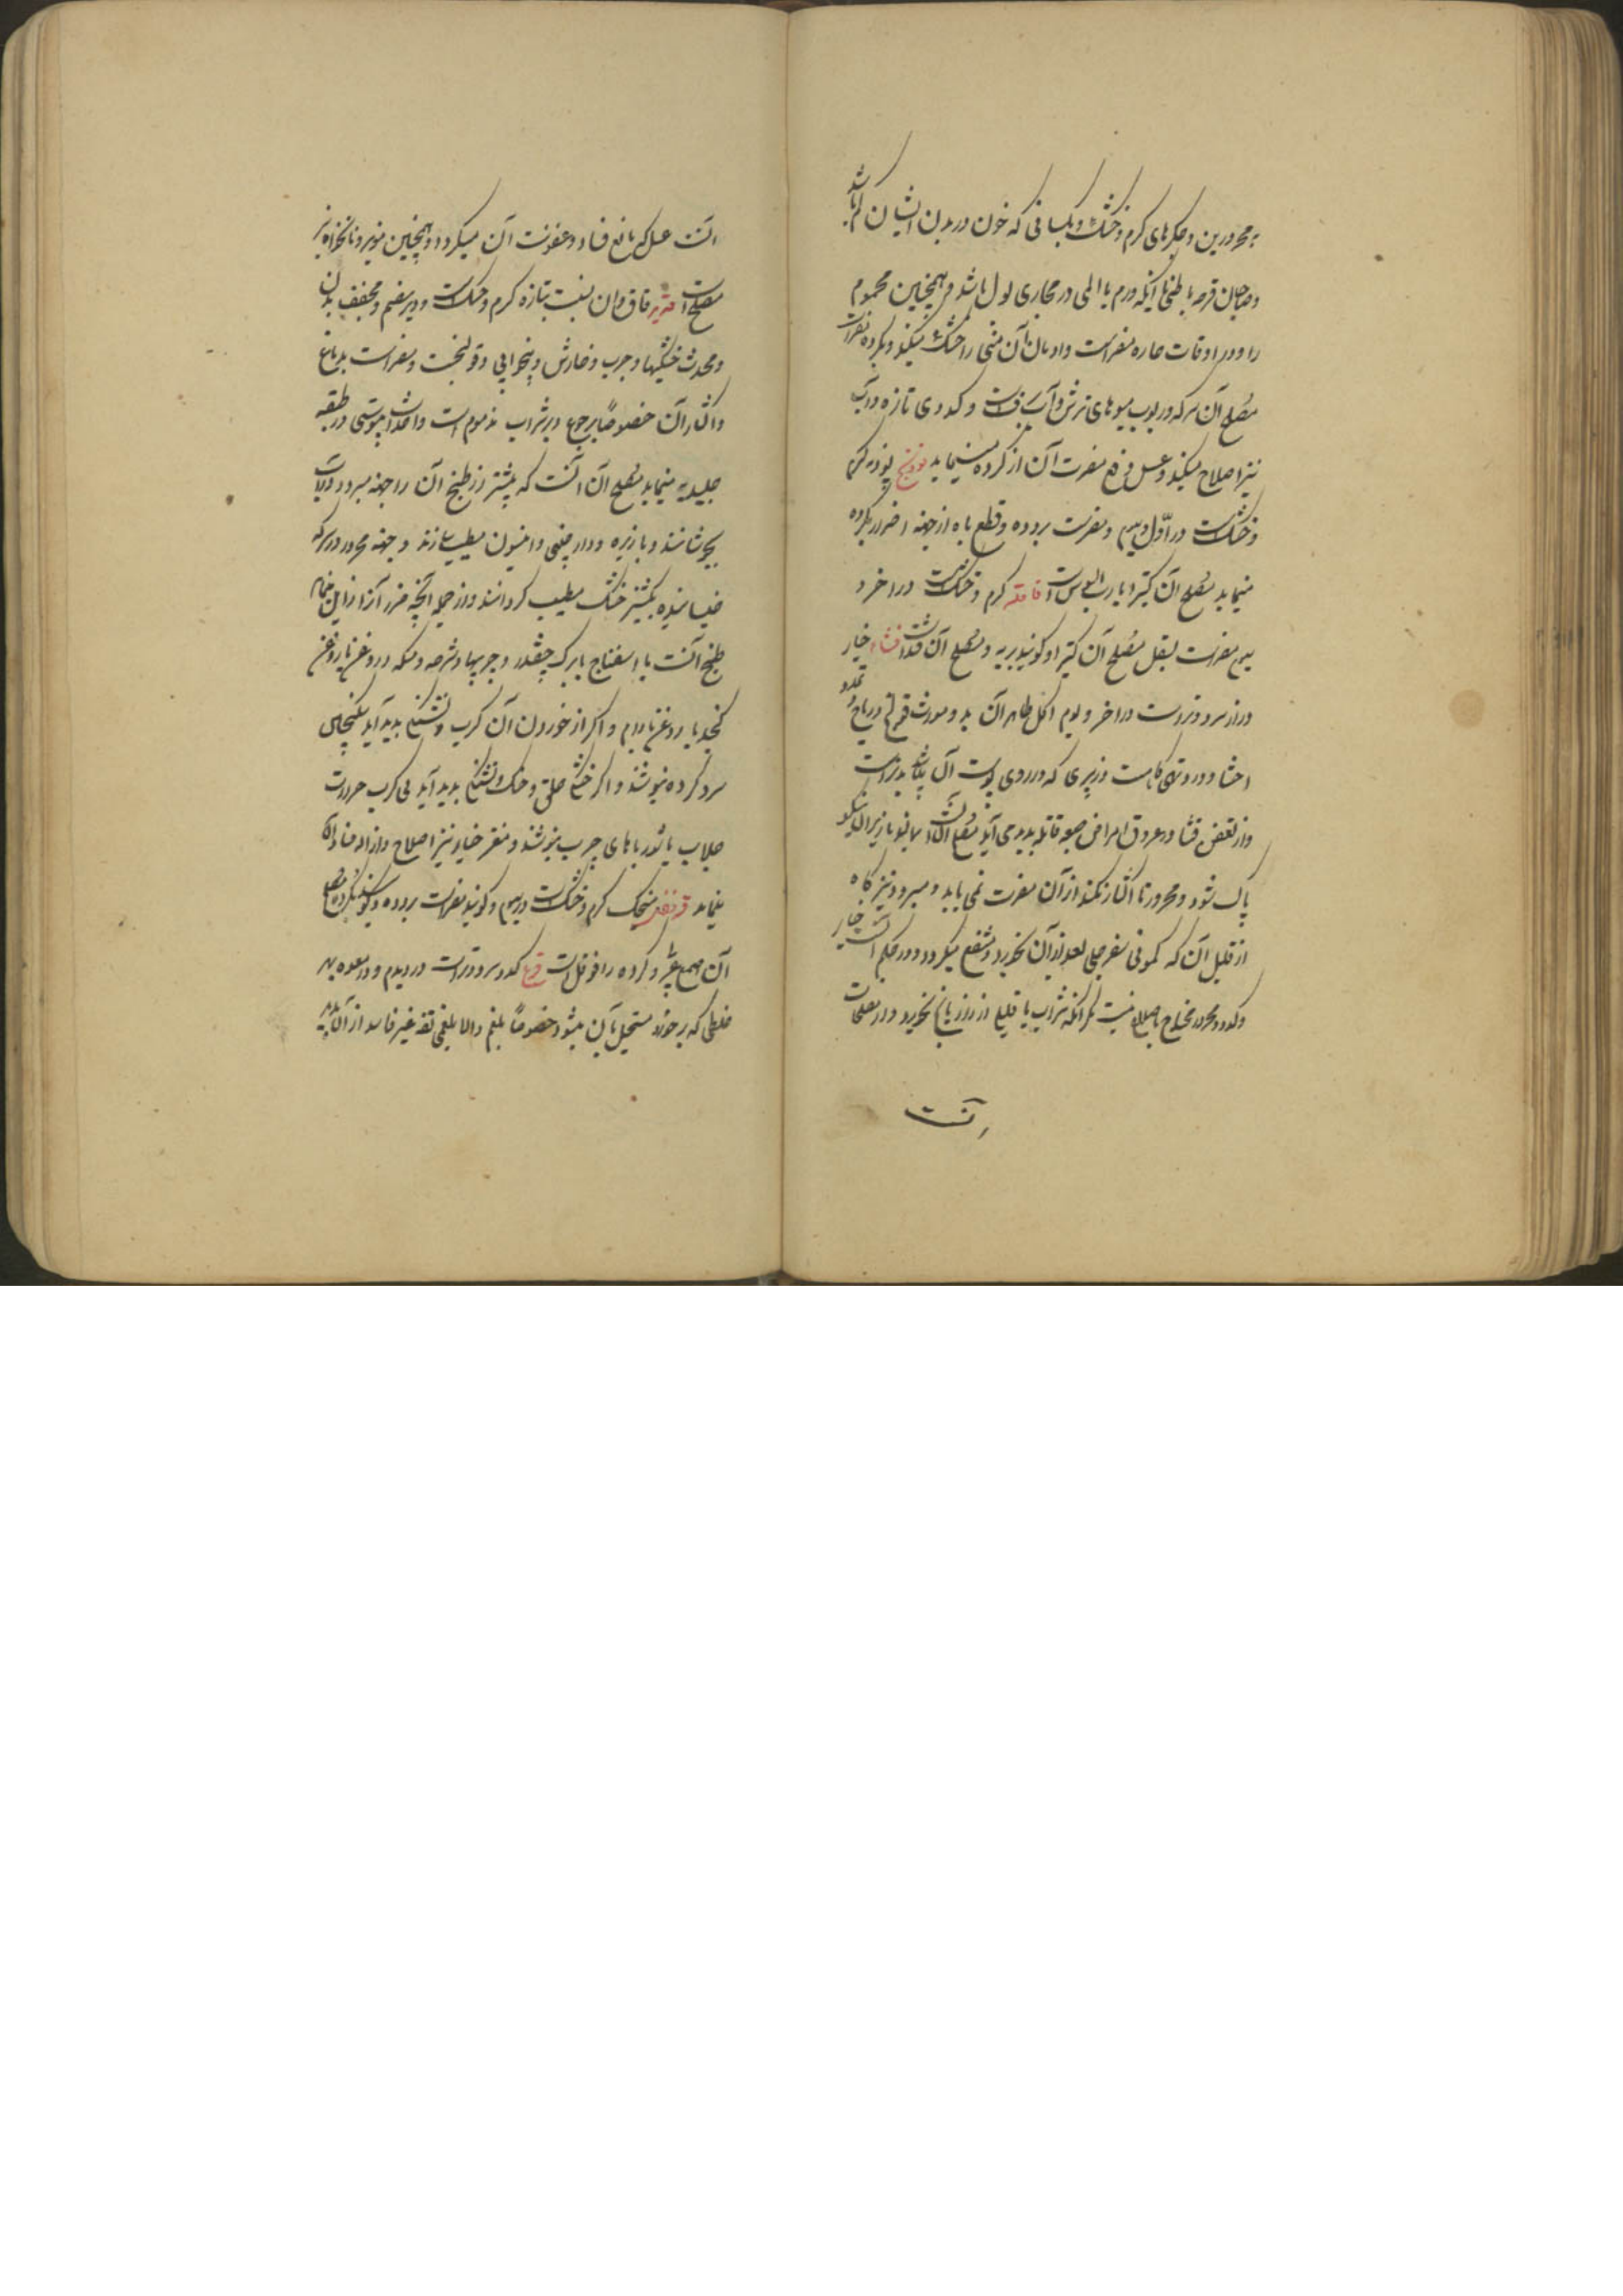 بمحرورین و جگرهای گرم و خشک و بکسانی که خون در بدن ایشان کم باشد
و صاحبان قرحه باطنی یا آنکه ورم یا المی در مجاری بول باشد و همچنین محموم
را و در اوقات حاره مضر است و ادمان آن منی را خشک میکند و بگرده مضر است
مصلح آن سرکه و ربوب میوهای ترش و آب است و کدوی تازه در آب
نیز اصلاح میکند و عسل دفع مضرت آن از گرده مینماید فودنج پودنه گرم
و خشک است در اول سیم و مضر است برده و قطع باه از جهة اضرار بگرده
مینماید مصلح آن کتیرا یا رب السوس است قاقله گرم و خشک است در آخر
سیم مضر است بسفل مصلح آن کتیرا و گویند بریه و مصلح آن قند است قثاء خیار
دراز سرد و تر است در آخر دویم اکل آن بد و مورث قولنج و ریاح و تمدد
احشا و درد تهی گاه است و زبری که در روی پوست آن باشد بدتر است
و از تعفن قثا در عروق امراض صعبه قاتله بدید می آید مصلح آن آنست
پاک شود و محرور تا اکثار نکند از آن مضرت نمی یابد و مبرود نیز گاه
از قلیل آن که کمونی سفرجلی بعد از آن بخورد منتفع میگردد و در حکم آنست خیار
و کدو و محرور محتاج باصلاح نیست مگر آنکه شراب یا قلیلی از رازیانج بخورد و از مصلحات
آنست
آنست عسل که مانع فساد و عفونت آن میگردد و همچنین مویز و نانخواه نیز
مصلح است قدید قاق و آن نسبت بتازه گرم و خشک است و دیر هضم و مجفف بدن
و محدث خشکیها و جرب و خارش و بیخوابی و قولنجست و مضر است بدماغ
و اکثار آن خصوصاً بر جوع و بر شراب مذموم است و احداث یبوستی در طبقه
جلیدیه مینماید مصلح آن آنست که پیشتر از طبخ آن را جهة مبرود در آب
بجوشانند و با زیره و دارچینی و انیسون مطیب سازند و جهة محرور در سرکه
خیسانیده بکشنیز خشک مطیب گردانند و از جمله آنچه ضرر آنرا زایل میسازد
طبخ آنست با اسفناج یا برگ چغندر و چربیها و شرحه و مسکه و روغن یا روغن
کنجد یا روغن بادام و اگر از خوردن آن کرب و تشنگی بدید آید سکنجبین
سرد کرده بنوشند و اگر خشکی حلق و حنک و تشنگی بدید آید بی کرب حرارت
جلاب یا شوربا های چرب بنوشند و مغز خیار نیز اصلاح و ازاله فساد آن
مینماید قرنفل میخک گرم و خشک است در سیم و گویند مضر است برده و گویند بگرده و مصلح
آن صمغ عربی و گرده را فوفل است قرع کدو سرد و تر است در دویم و در معده بهر
خلطی که بر خورد مستحیل بآن میشود خصوصاً بلغم و الا بلغمی تفه غیر فاسد از آن